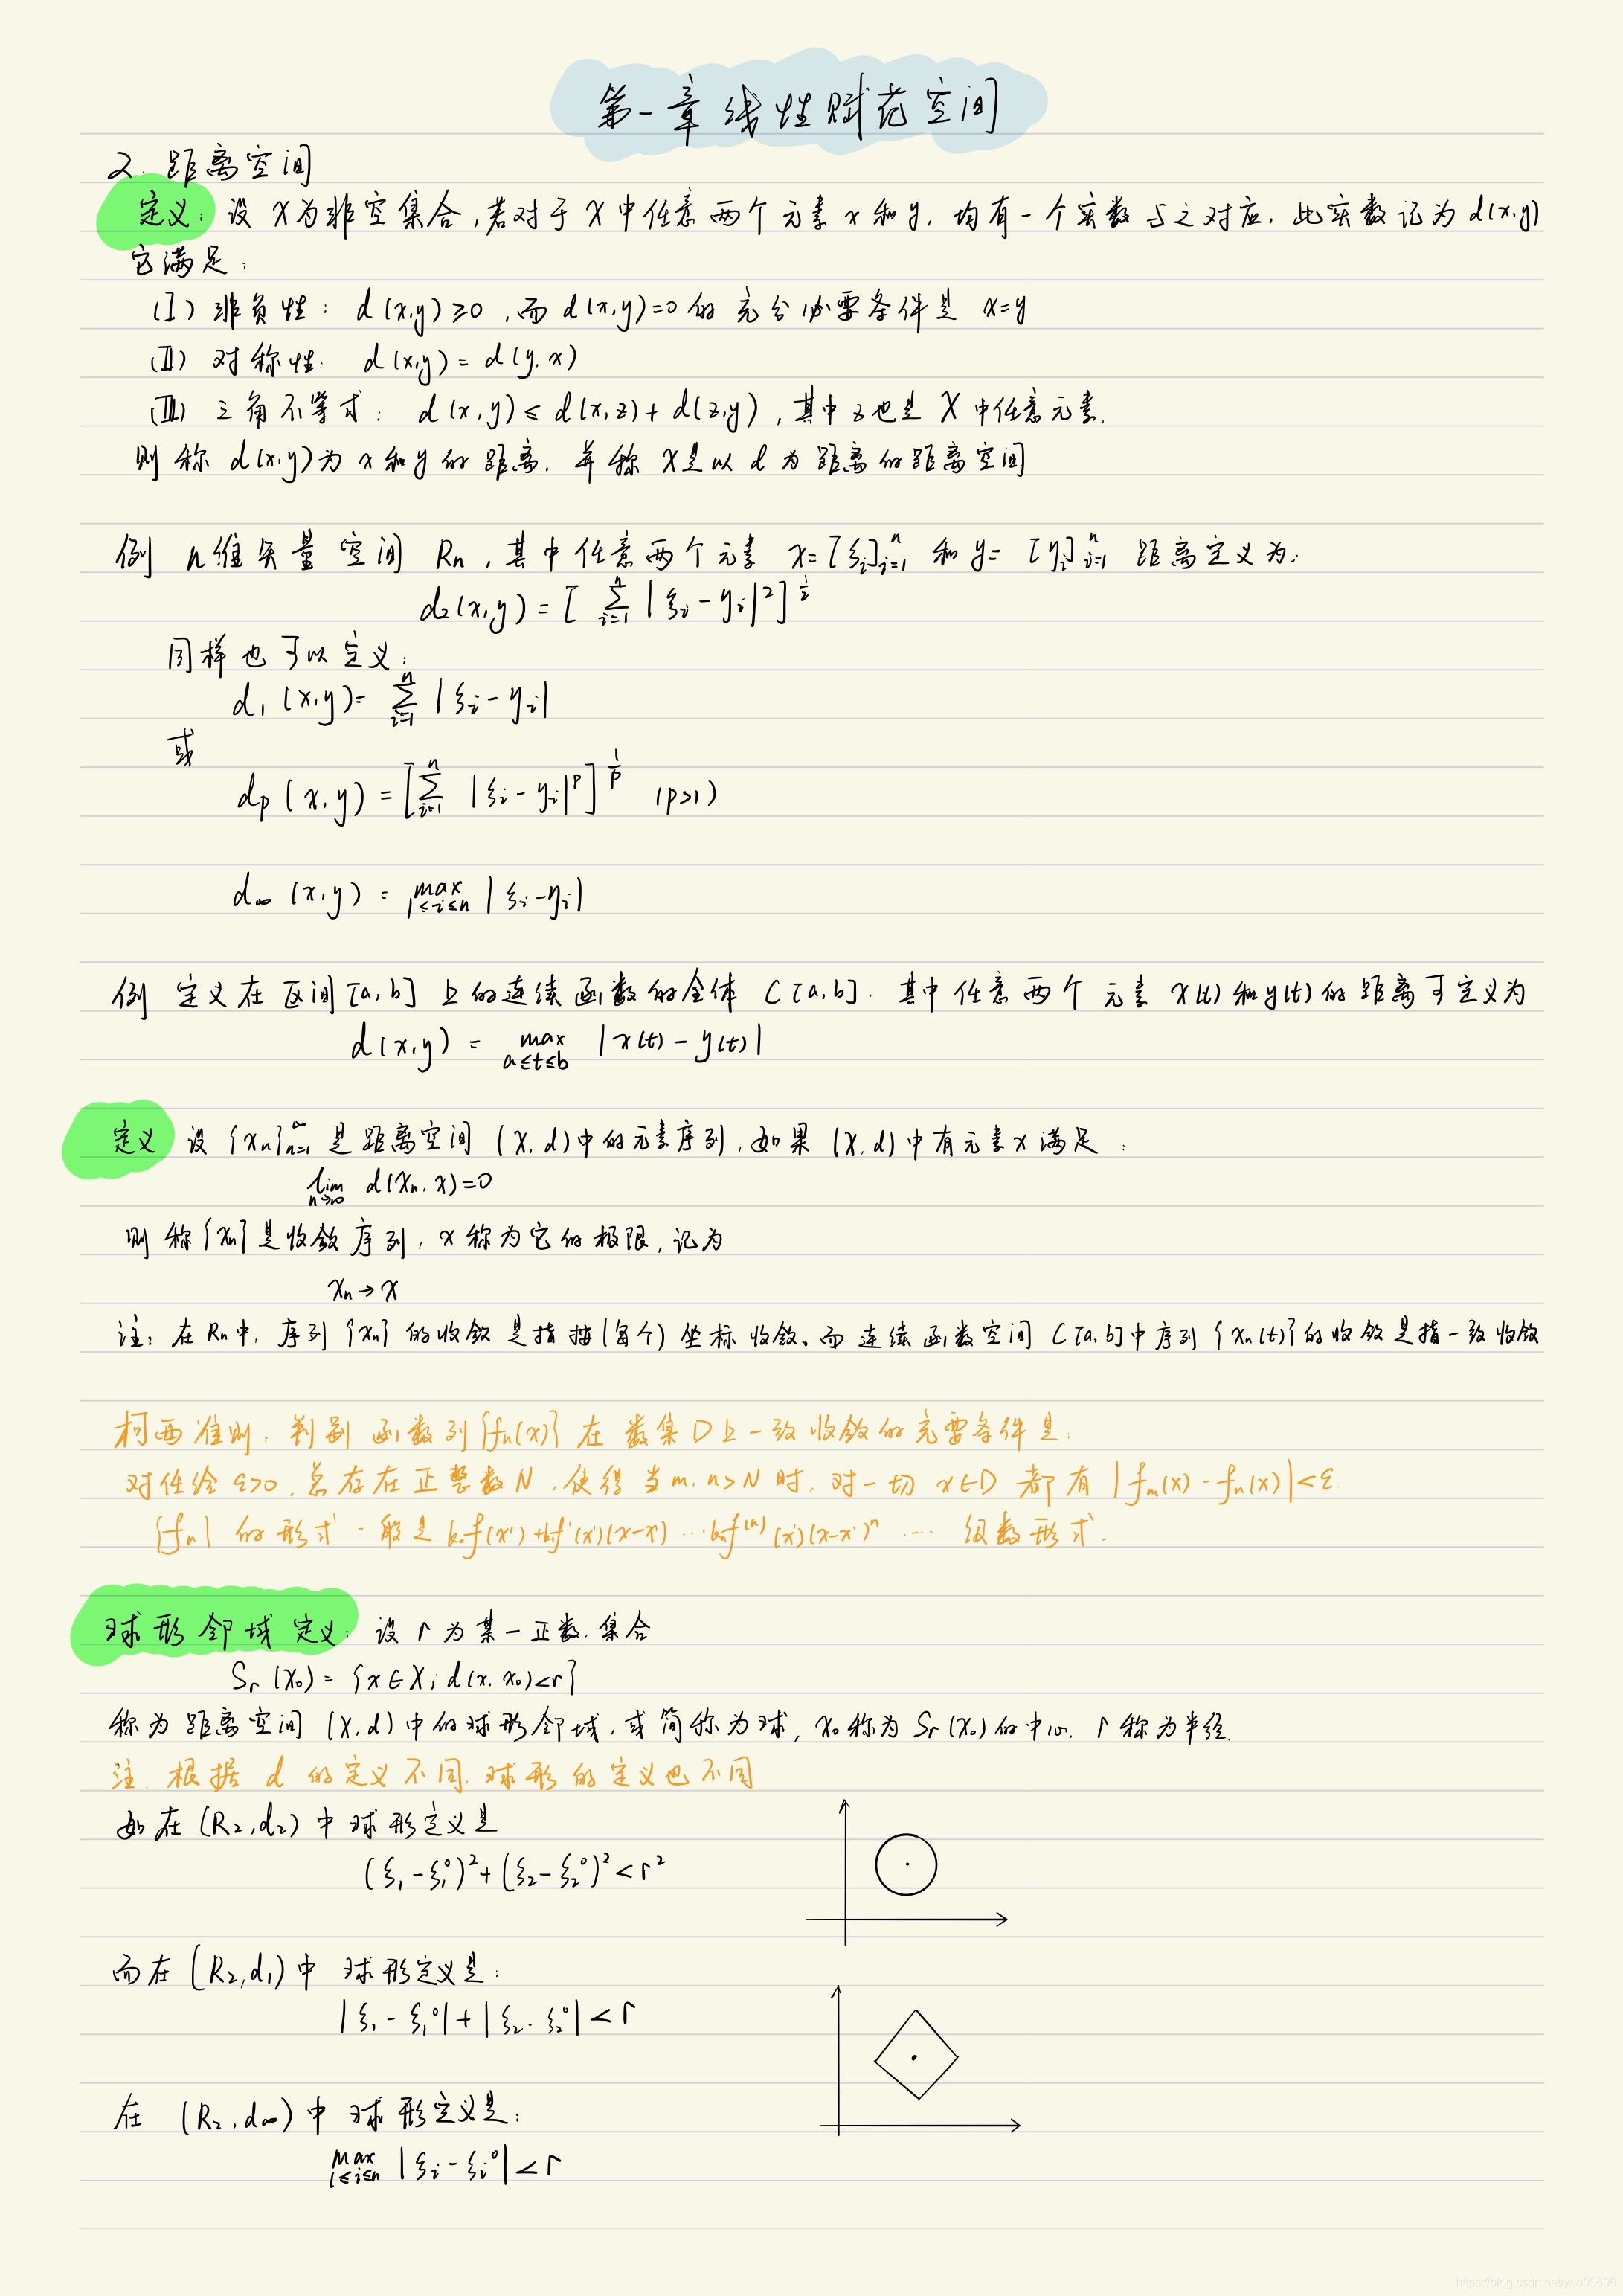 第一章 线性赋范空间
2. 距离空间
定义: 设 X为非空集合,若对于 X 中任意两个元素 x 和 y, 均有一个实数与之对应, 此实数记为 d(x,y)
它满足:
(I) 非负性: d(x,y)≥0 ,而 d(x,y)=0 的充分必要条件是 x=y
(II) 对称性: d(x,y) = d(y,x)
(III) 三角不等式: d(x,y) ≤ d(x,z) + d(z,y) , 其中 z 也是 X 中任意元素.
则称 d(x,y)为 x 和 y 的距离. 并称 X是以 d 为距离的距离空间
例 n维矢量空间 Rn , 其中任意两个元素 x=[ξi]ⁿi=1 和 y= [yi]ⁿi=1 距离定义为:
d₂(x,y) = [ Σⁿi=1 |ξi - yi|² ]^½
同样也可以定义:
d₁(x,y)= Σⁿi=1 |ξi - yi|
或
dp(x,y) = [Σⁿi=1 |ξi - yi|^p]^(1/p) (p>1)
d∞(x,y) = max 1≤i≤n |ξi - ηi|
例 定义在区间[a,b] 上的连续函数的全体 C[a,b]. 其中任意两个元素 x(t) 和y(t) 的距离可定义为
d(x,y) = max a≤t≤b |x(t) - y(t)|
定义 设 {xn}^∞n=1 是距离空间 (X,d)中的元素序列,如果 (X,d)中有元素x 满足:
lim n→∞ d(xn,x)=0
则称{xn}是收敛序列, x 称为它的极限,记为
xn → x
注: 在 Rn中, 序列 {xn} 的收敛是指按(每个)坐标收敛、而连续函数空间 C[a,b]中序列 {xn(t)}的收敛是指一致收敛
柯西准则: 判别函数列{fn(x)} 在数集 D上一致收敛的充要条件是:
对任给 ε>0, 总存在正整数 N ,使得当 m, n>N 时, 对一切 x∈D 都有 |fm(x) - fn(x)|<ε.
{fn} 的形式一般是 k₀f(x') + k₁f'(x')(x-x') ⋯ knf⁽ⁿ⁾(x')(x-x')ⁿ ⋯ 级数形式.
球形邻域定义: 设 r 为某一正数, 集合
Sr(x₀) = {x∈X; d(x,x₀)<r}
称为距离空间 (X,d)中的球形邻域, 或简称为球, x₀称为 Sr(x₀)的中心. r 称为半径.
注. 根据 d 的定义不同, 球形的定义也不同
如在(R₂,d₂) 中球形定义是
(ξ₁ - ξ₁⁰)² + (ξ₂ - ξ₂⁰)² < r²
而在(R₂,d₁)中 球形定义是:
|ξ₁ - ξ₁⁰| + |ξ₂ - ξ₂⁰| < r
在 (R₂,d∞) 中 球形定义是:
max 1≤i≤n |ξi - ξi⁰| < r
https://blog.csdn.net/yao09605